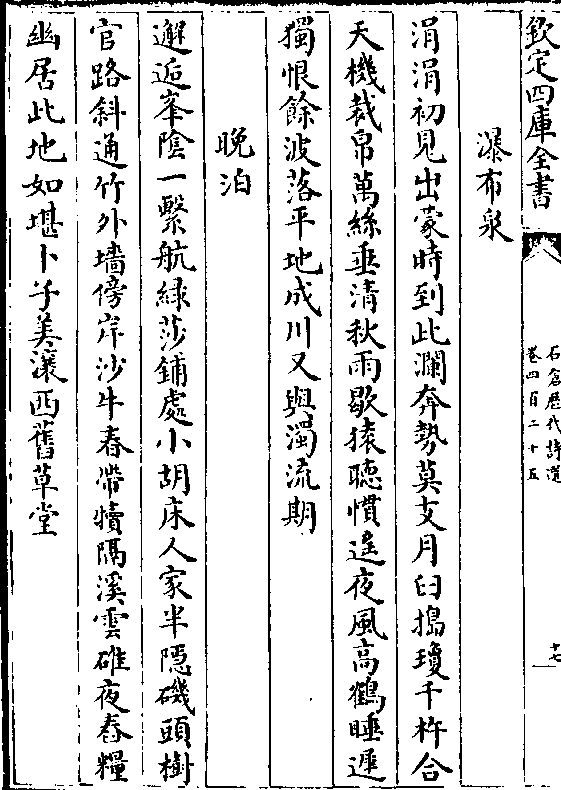 欽定四庫全書
石倉歷代詩選
卷四百二十五
十七
瀑布泉
涓涓初見出蒙時到此瀾奔勢莫支月臼搗瓊千杵合
天機裁帛萬絲垂清秋雨歇猿聽慣遙夜風高鶴睡遲
獨恨餘波落平地成川又與濁流期
晚泊
邂逅峯陰一繫航綠莎鋪處小胡床人家半隱磯頭樹
官路斜通竹外墻傍岸沙牛春帶犢隔溪雲碓夜舂糧
幽居此地如堪卜子美瀼西舊草堂